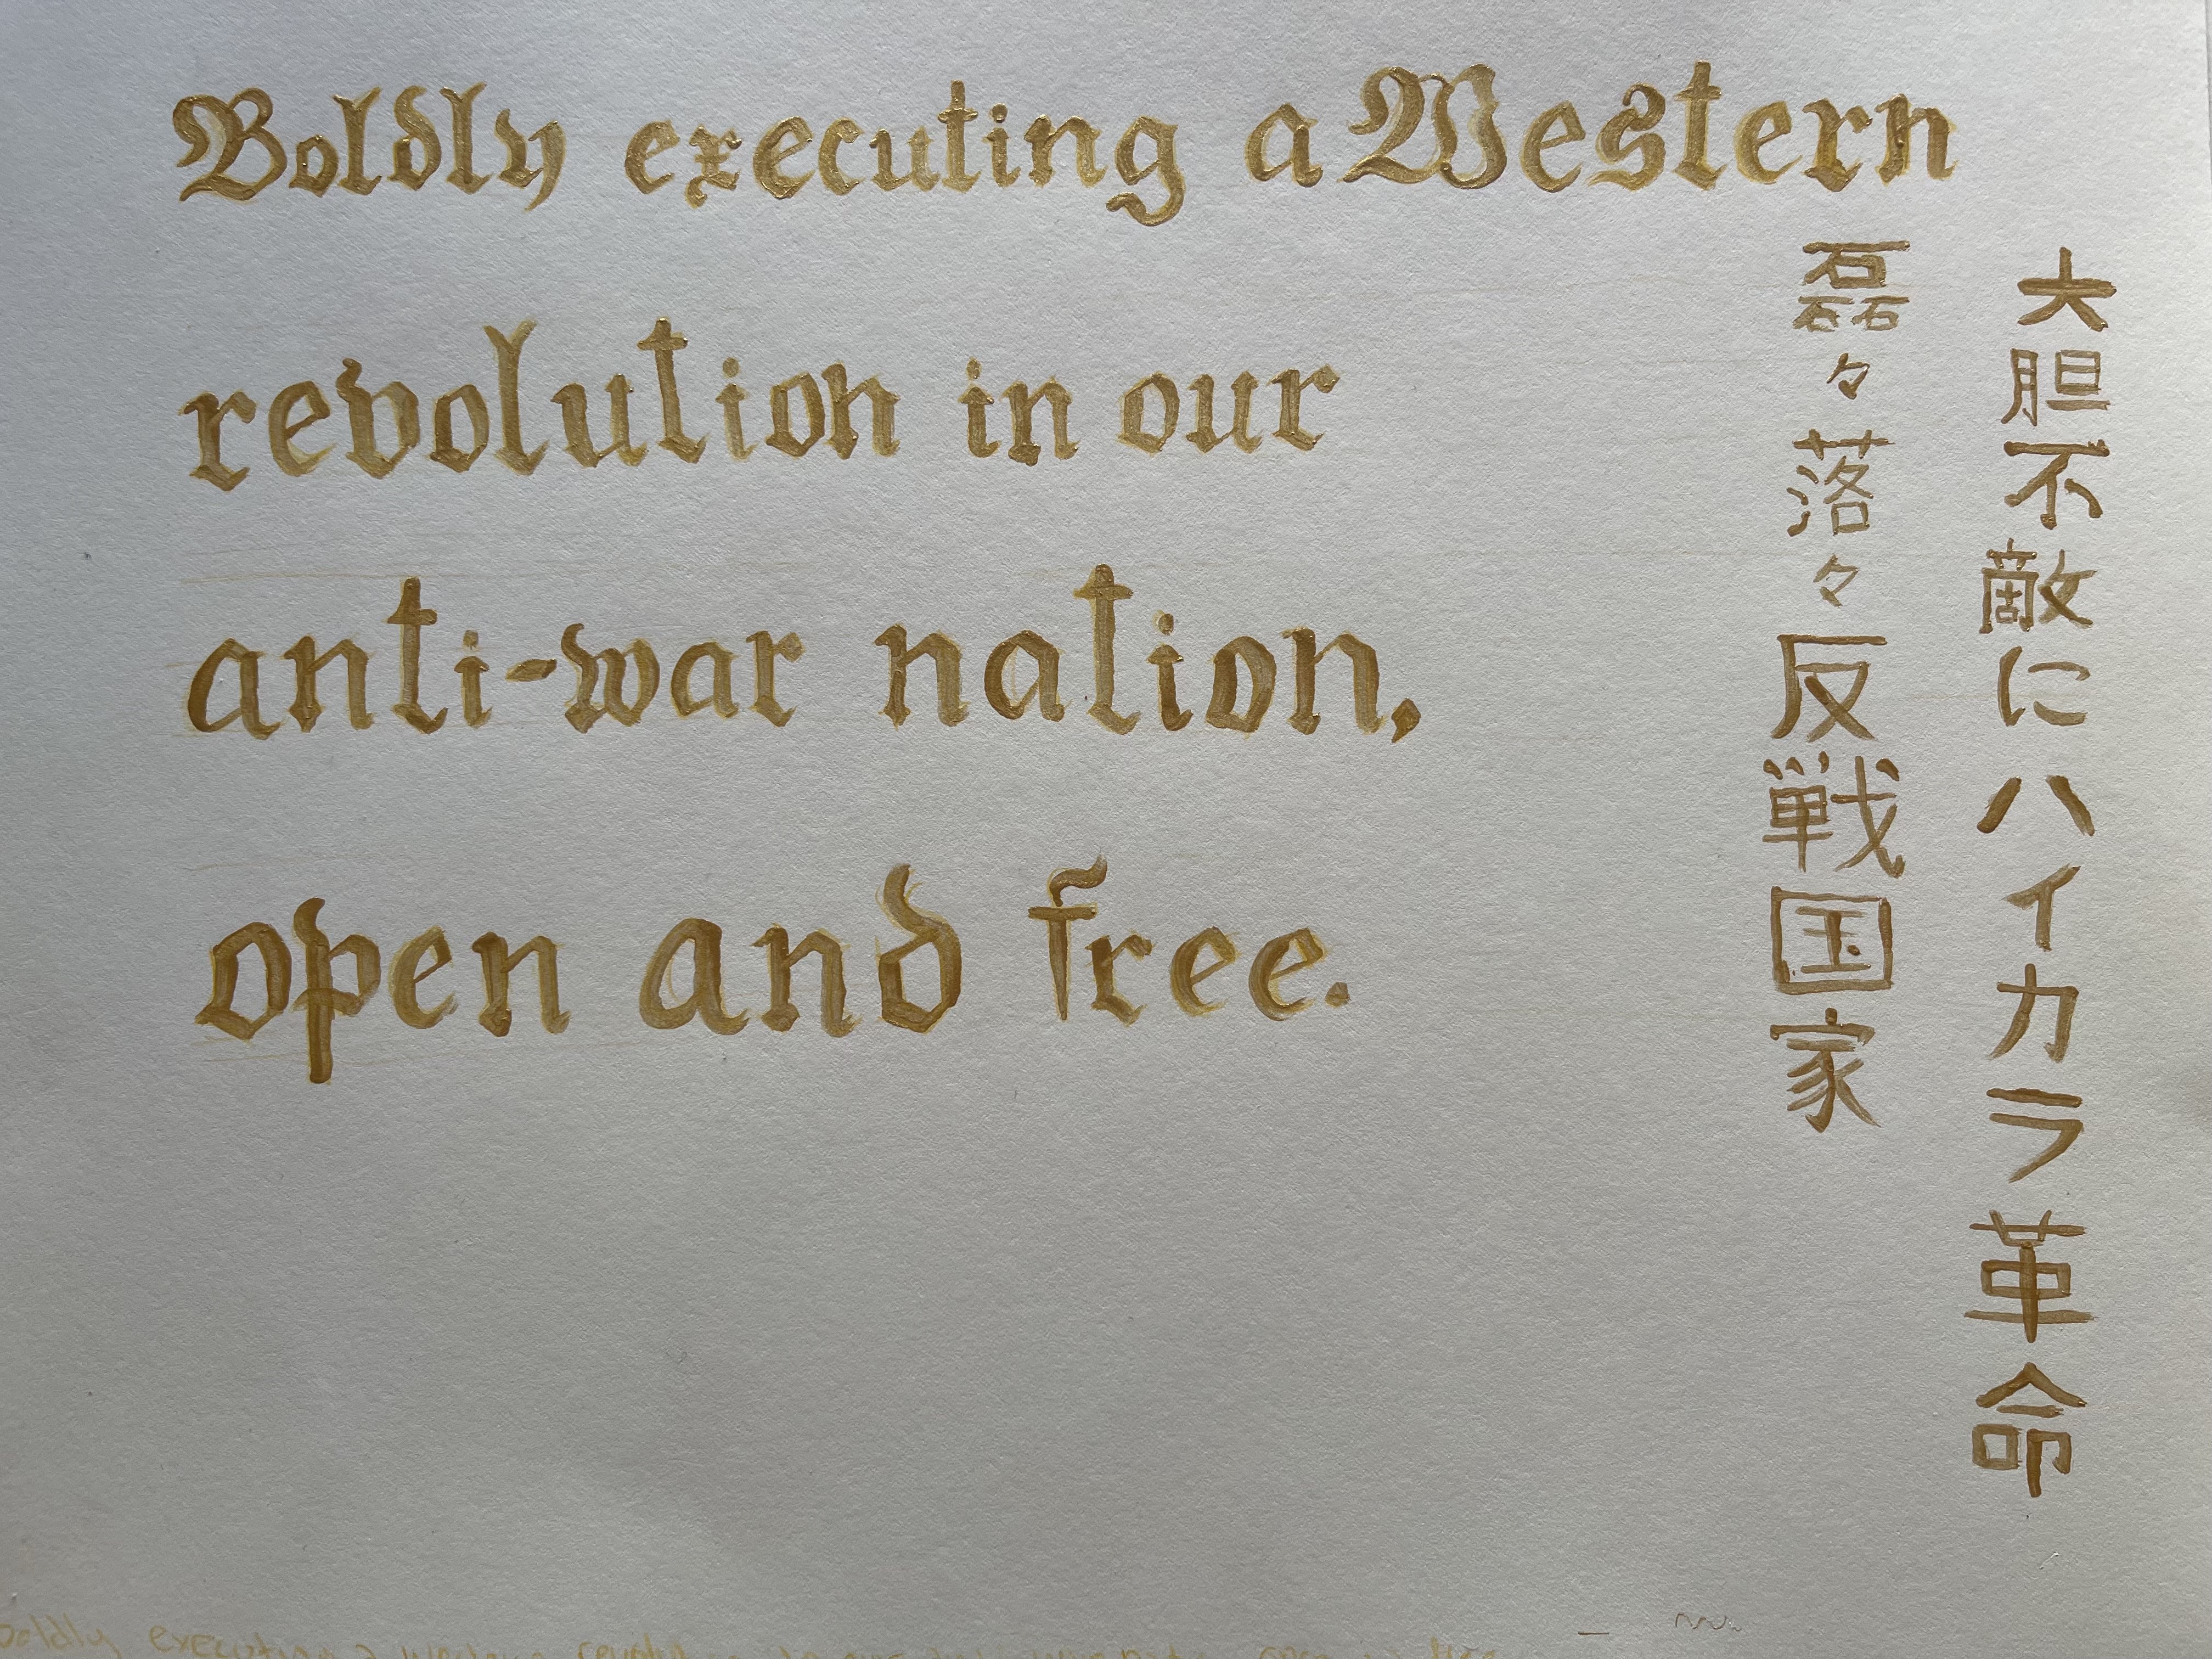 Boldly executing a Western
revolution in our
anti-war nation,
open and free.
大胆不敵にハイカラ革命
磊々落々反戦国家
boldly executing a western